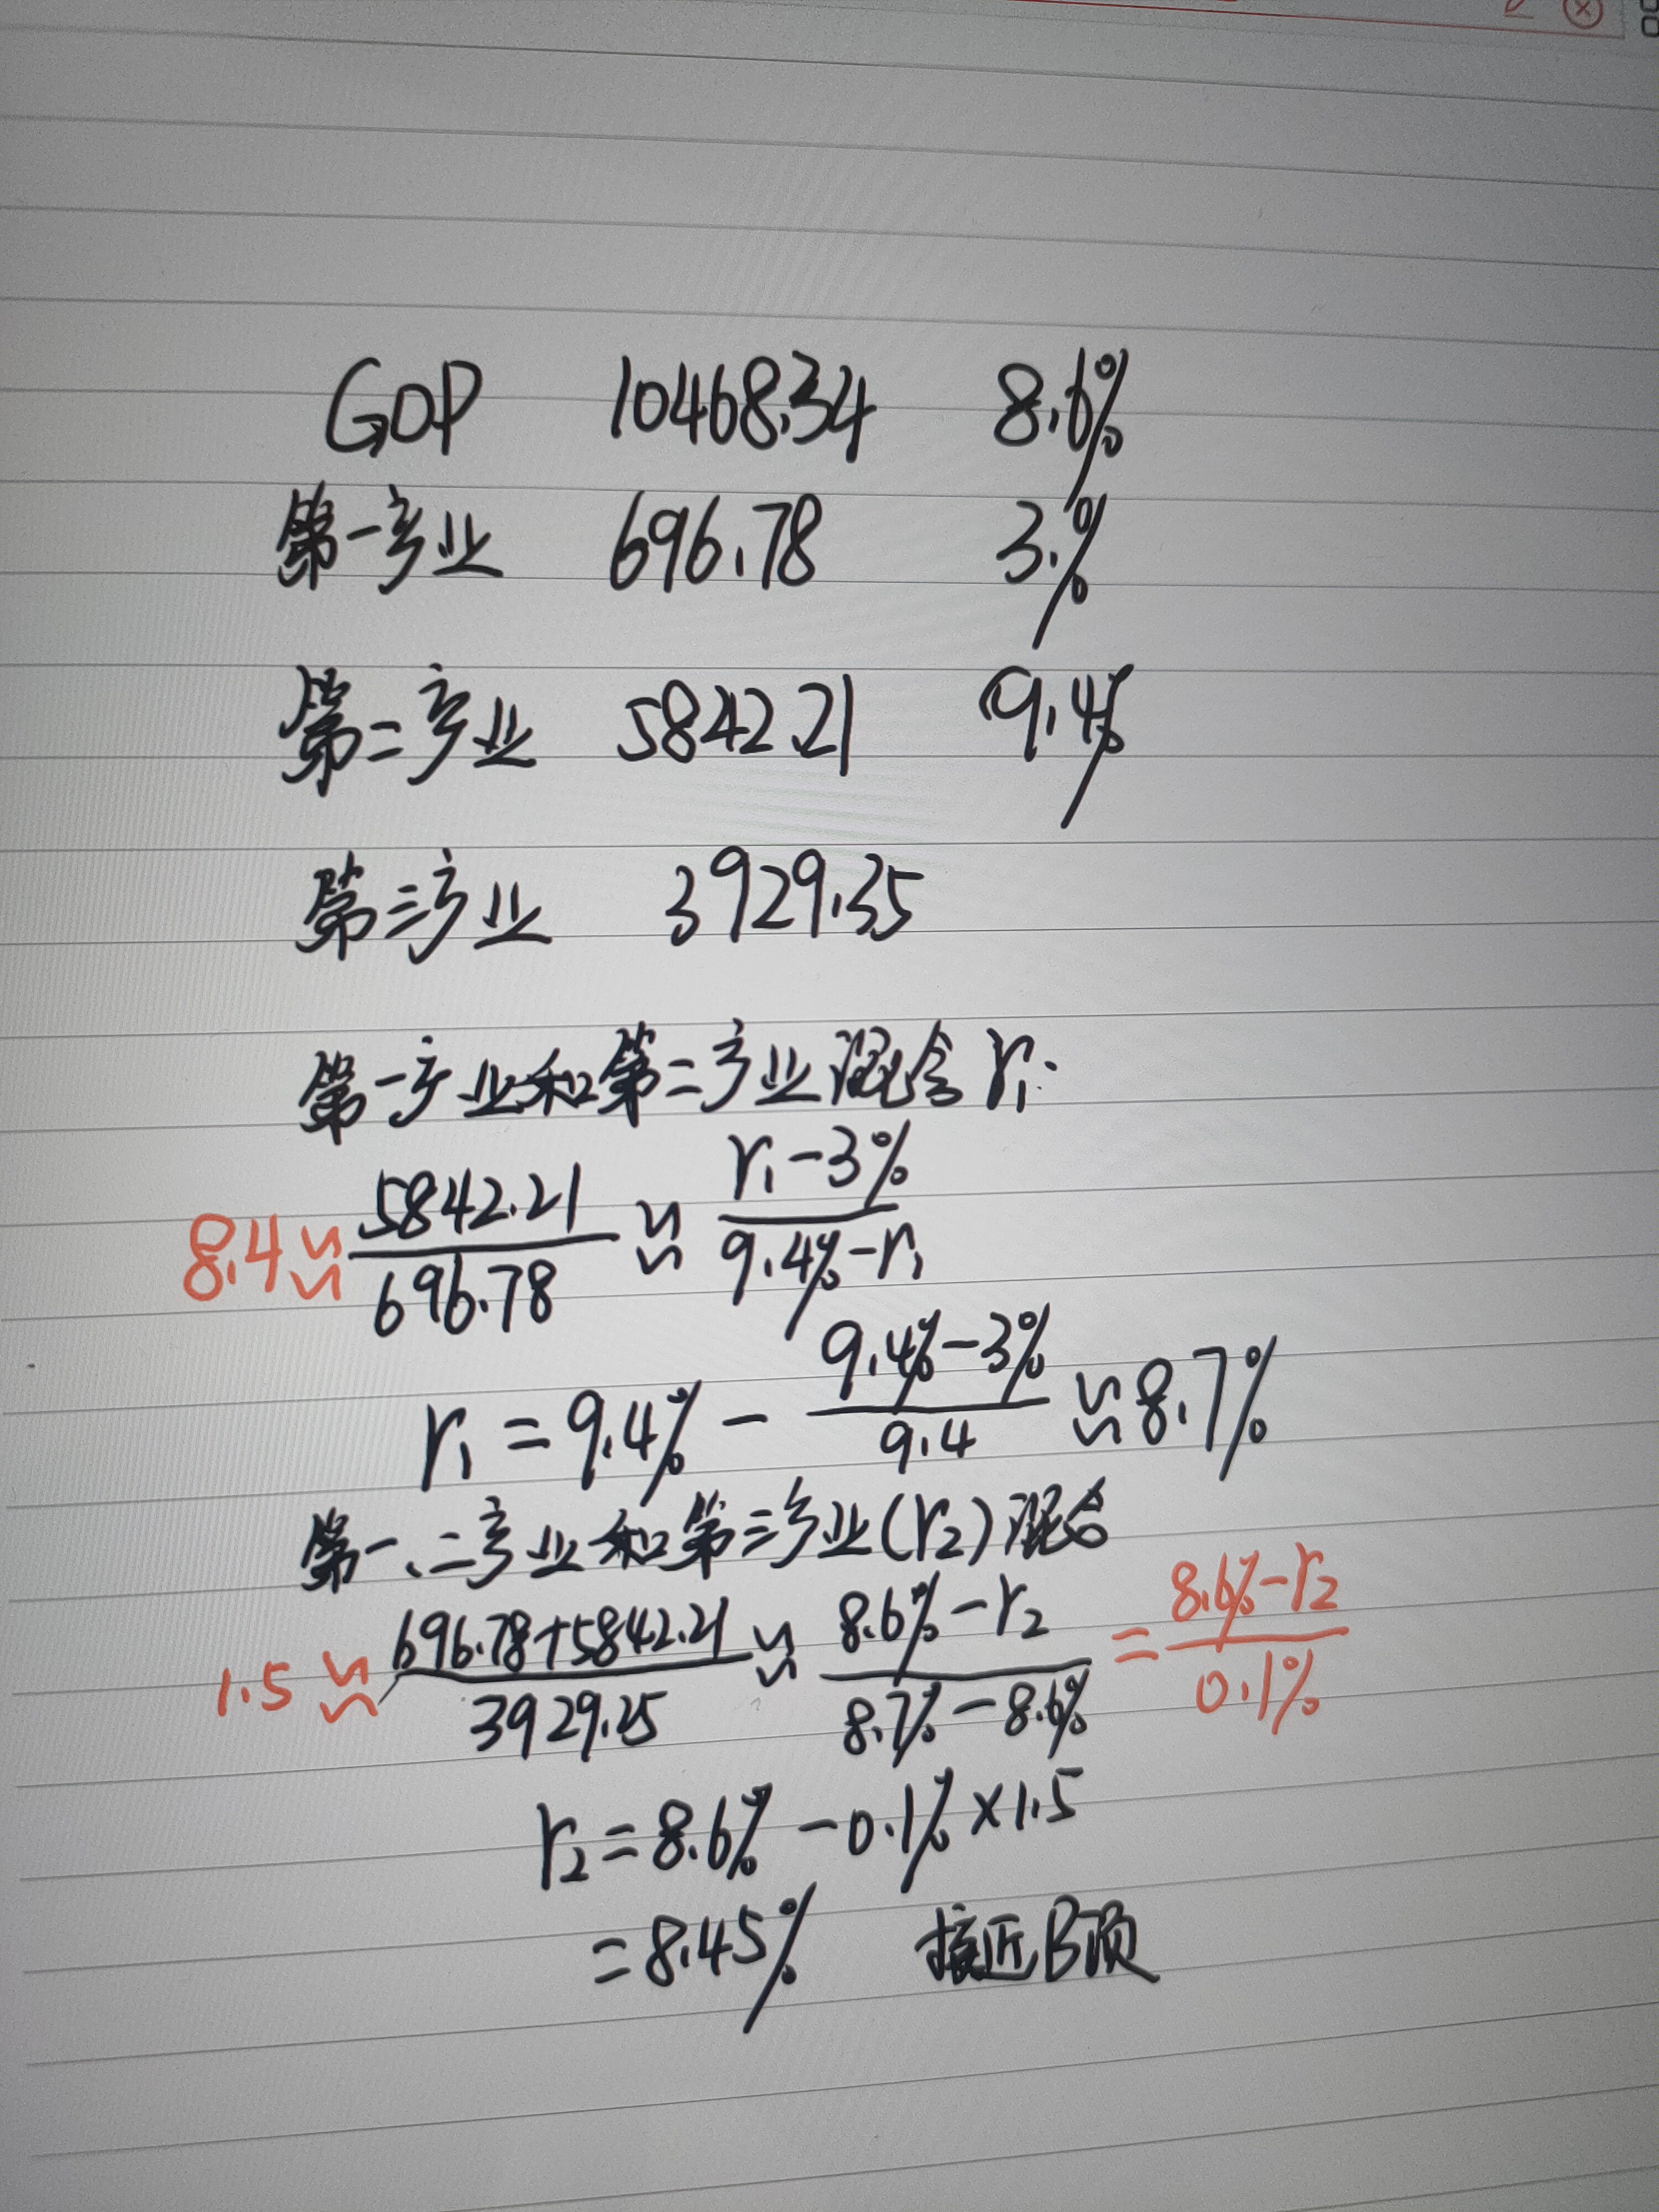 GDP 10468.34 8.6%
第一产业 696.78 3.%
第二产业 5842.21 9.4%
第三产业 3929.35
第一产业和第二产业混合 r₁.
8.4≈ 5842.21/696.78 ≈ r₁-3%/9.4%-r₁
r₁ = 9.4% - 9.4%-3%/9.4 ≈ 8.7%
第一、二产业和第三产业(r₂)混合
1.5 ≈ 696.78+5842.21/3929.25 ≈ 8.6%-r₂/8.7%-8.6% = 8.6%-r₂/0.1%
r₂=8.6% -0.1%×1.5
=8.45% 接近B项